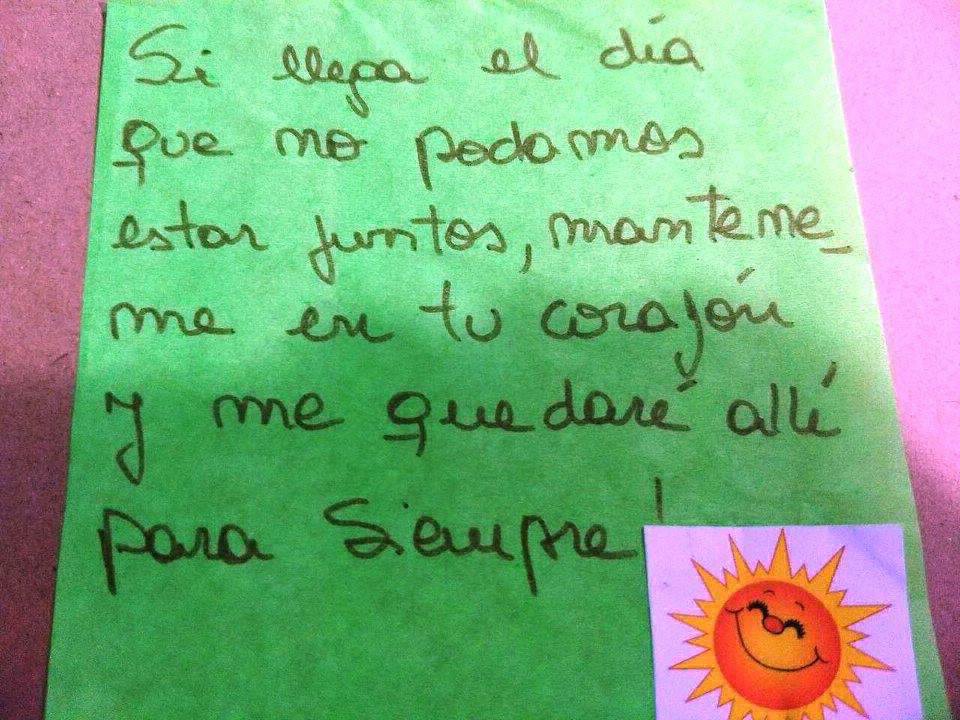 Si llega el día
que no podamos
estar juntos, manteme_
me en tu corazón
y me quedaré allí
para siempre!